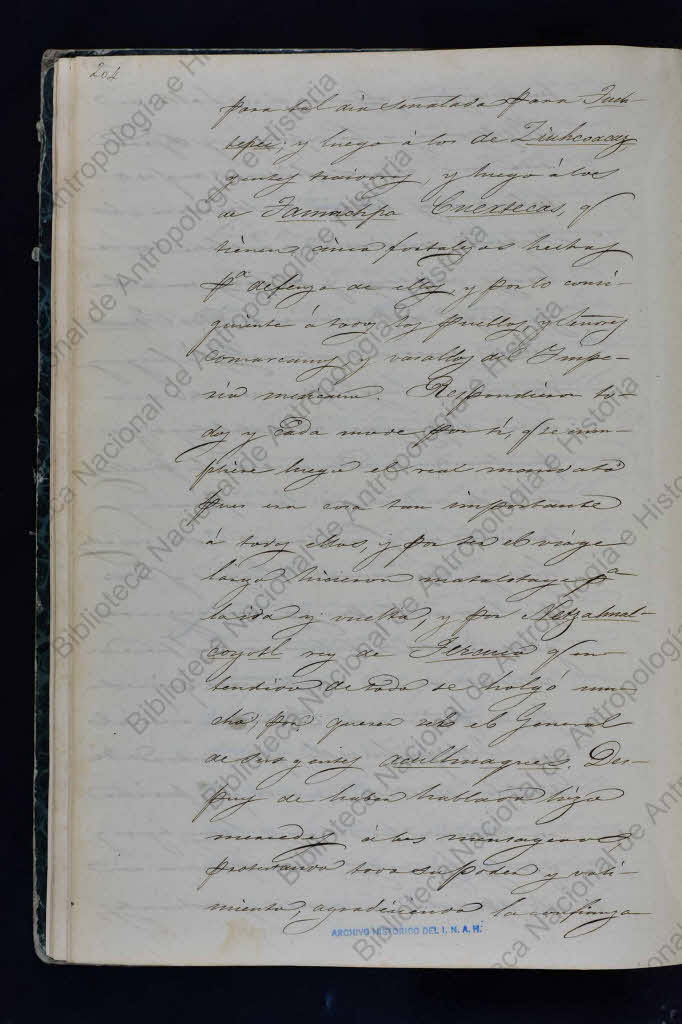 204
para tal dia señalado para Tuch-
tepec; y luego á los de Ziuhcoacaz
gentes traidores, y luego á los
de Tamachpa Cuextecas, q̃
tienen cinco fortalezas hechas
pª defenza de ellos, y por lo consi-
guiente á todos los pueblos y señores
comarcanos y vasallos del Impe-
rio mexicano. Respondieron to-
dos y cada uno de por sí, q̃ se cum-
pliese luego el real mandato
pues era cosa tan importante
á todos ellos, y por ser el viage
largo hicieron matalotage pª
la ida y vuelta, y por Netzahual-
coyotl rey de Tezcuco q̃ en-
tendido de todo se holgó mu-
cho, por querer ser el General
de sus gentes aculhuaques. Des-
pues de haber hablado hizo
mercedes á los mensageros,
protestando todo su poder y vali-
miento, agradeciendo la confianza
ARCHIVO HISTORICO DEL I. N. A. H.
Biblioteca Nacional de Antropología e Historia